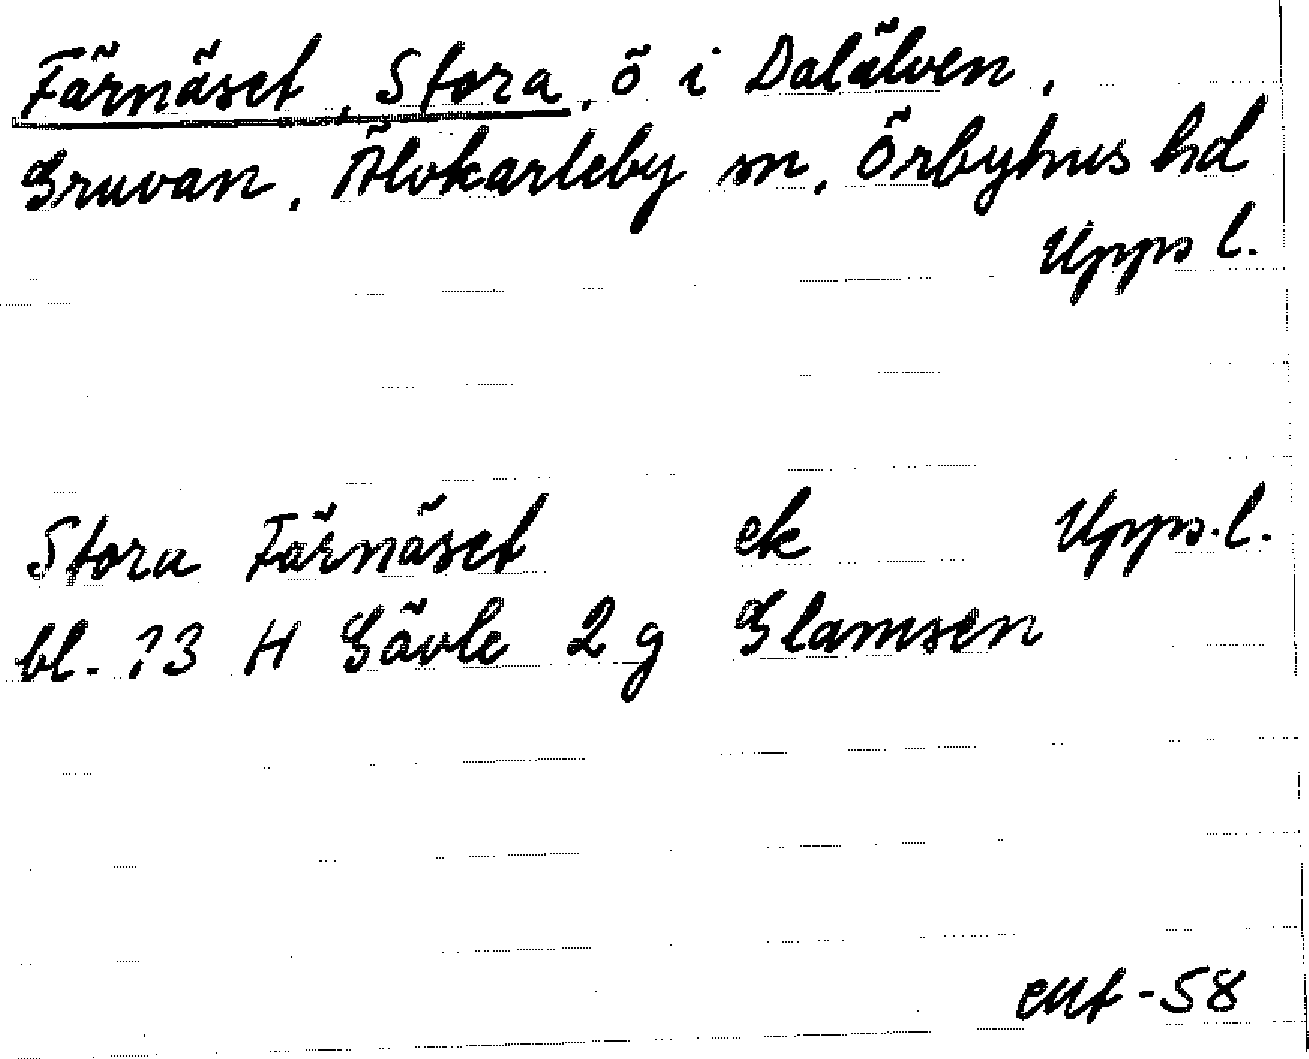 Färnäset, Stora, ö i Dalälven,
Gruvan, Älvkarleby sn, Örbyhus hd
Upps l.
Stora Färnäset ek Upps. l.
bl. 13 H Gävle 2 g Glamsen
-58